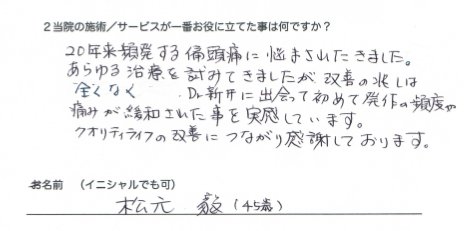 2当院の施術／サービスが一番お役に立てた事は何ですか？
20年来頻発する偏頭痛に悩まされたきました。
あらゆる治療を試みてきましたが改善の兆しは
全くなく Dr新井に出会って初めて発作の頻度や
痛みが緩和された事を実感しています。
クオリティライフの改善につながり感謝しております。
お名前 （イニシャルでも可）
松元 毅（45歳）